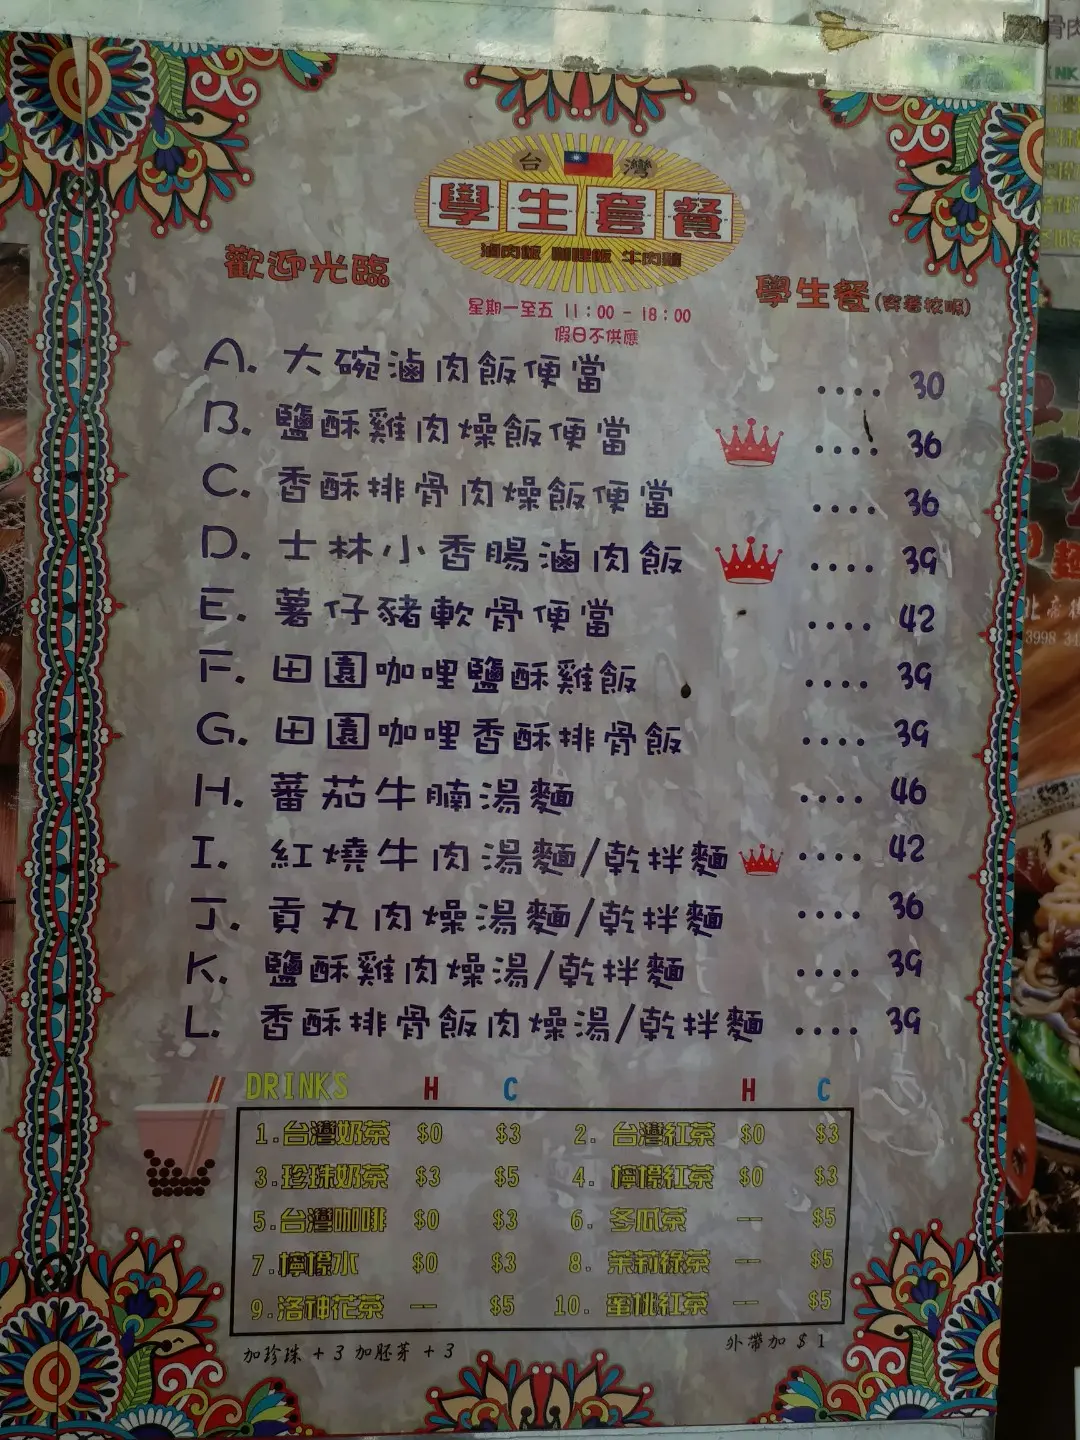 台灣
學生套餐
滷肉飯 咖哩飯 牛肉麵
歡迎光臨
學生餐(穿著校服)
星期一至五 11:00 - 18:00
假日不供應
A. 大碗滷肉飯便當 .... 30
B. 鹽酥雞肉燥飯便當 .... 36
C. 香酥排骨肉燥飯便當 .... 36
D. 士林小香腸滷肉飯 .... 39
E. 薯仔豬軟骨便當 .... 42
F. 田園咖哩鹽酥雞飯 .... 39
G. 田園咖哩香酥排骨飯 .... 39
H. 蕃茄牛腩湯麵 .... 46
I. 紅燒牛肉湯麵/乾拌麵 .... 42
J. 貢丸肉燥湯麵/乾拌麵 .... 36
K. 鹽酥雞肉燥湯/乾拌麵 .... 39
L. 香酥排骨飯肉燥湯/乾拌麵 .... 39
DRINKS H C H C
1.台灣奶茶 $0 $3 2. 台灣紅茶 $0 $3
3.珍珠奶茶 $3 $5 4. 檸檬紅茶 $0 $3
5.台灣咖啡 $0 $3 6. 冬瓜茶 -- $5
7.檸檬水 $0 $3 8. 茉莉綠茶 -- $5
9.洛神花茶 -- $5 10. 蜜桃紅茶 -- $5
加珍珠 +3 加胚芽 +3
外帶加 $1